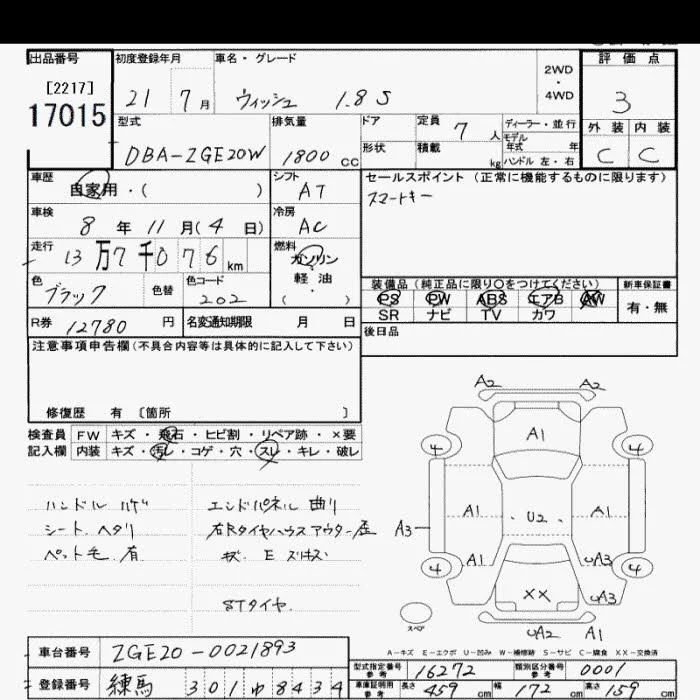 出品番号 初度登録年月 車名・グレード 2WD・4WD 評価点
[2217]
17015 21 7月 ウィッシュ 1.8 S 3
型式 排気量 ドア 定員 7人 ディーラー・並行 外装 内装
モデル年式 年
DBA-ZGE20W 1800cc 形状 積載 kg ハンドル 左・右 C C
車歴 自家用・( ) シフト AT セールスポイント(正常に機能するものに限ります)
スマートキー
車検 8年11月(4日) 冷房 AC
走行 13万7千076km 燃料 ガソリン・軽油・( )
色 ブラック 色替 色コード 202 装備品(純正品に限り○をつけてください) 新車保証書
PS PW ABS エアB AW 有・無
SR ナビ TV カワ
R券 12780円 名変通知期限 月 日 後日品
注意事項申告欄(不具合内容等は具体的に記入して下さい)
修復歴 有 〔箇所 〕
検査員 FW キズ・飛石・ヒビ割・リペア跡・×要
記入欄 内装 キズ・汚レ・コゲ・穴・スレ・キレ・破レ
ハンドル ハゲ エンドパネル 曲り
シート ヘタリ 右Rタイヤハウスアウター歪
ペット毛 有 キズ E ズリキズ
STタイヤ
A2 A2
A1
4 4
A1 U2 A1
A3
A1 UA3
4 4
XX UA3
UA2 A1
スペア
A-キズ E-エクボ U-凹み W-補修跡 S-サビ C-腐食 XX-交換済
車台番号 ZGE20-0021893 型式指定番号 参考 16272 類別区分番号 参考 0001
登録番号 練馬 301 ゆ 8434 車庫証明用 参考 長さ 459cm 幅 172cm 高さ 159cm